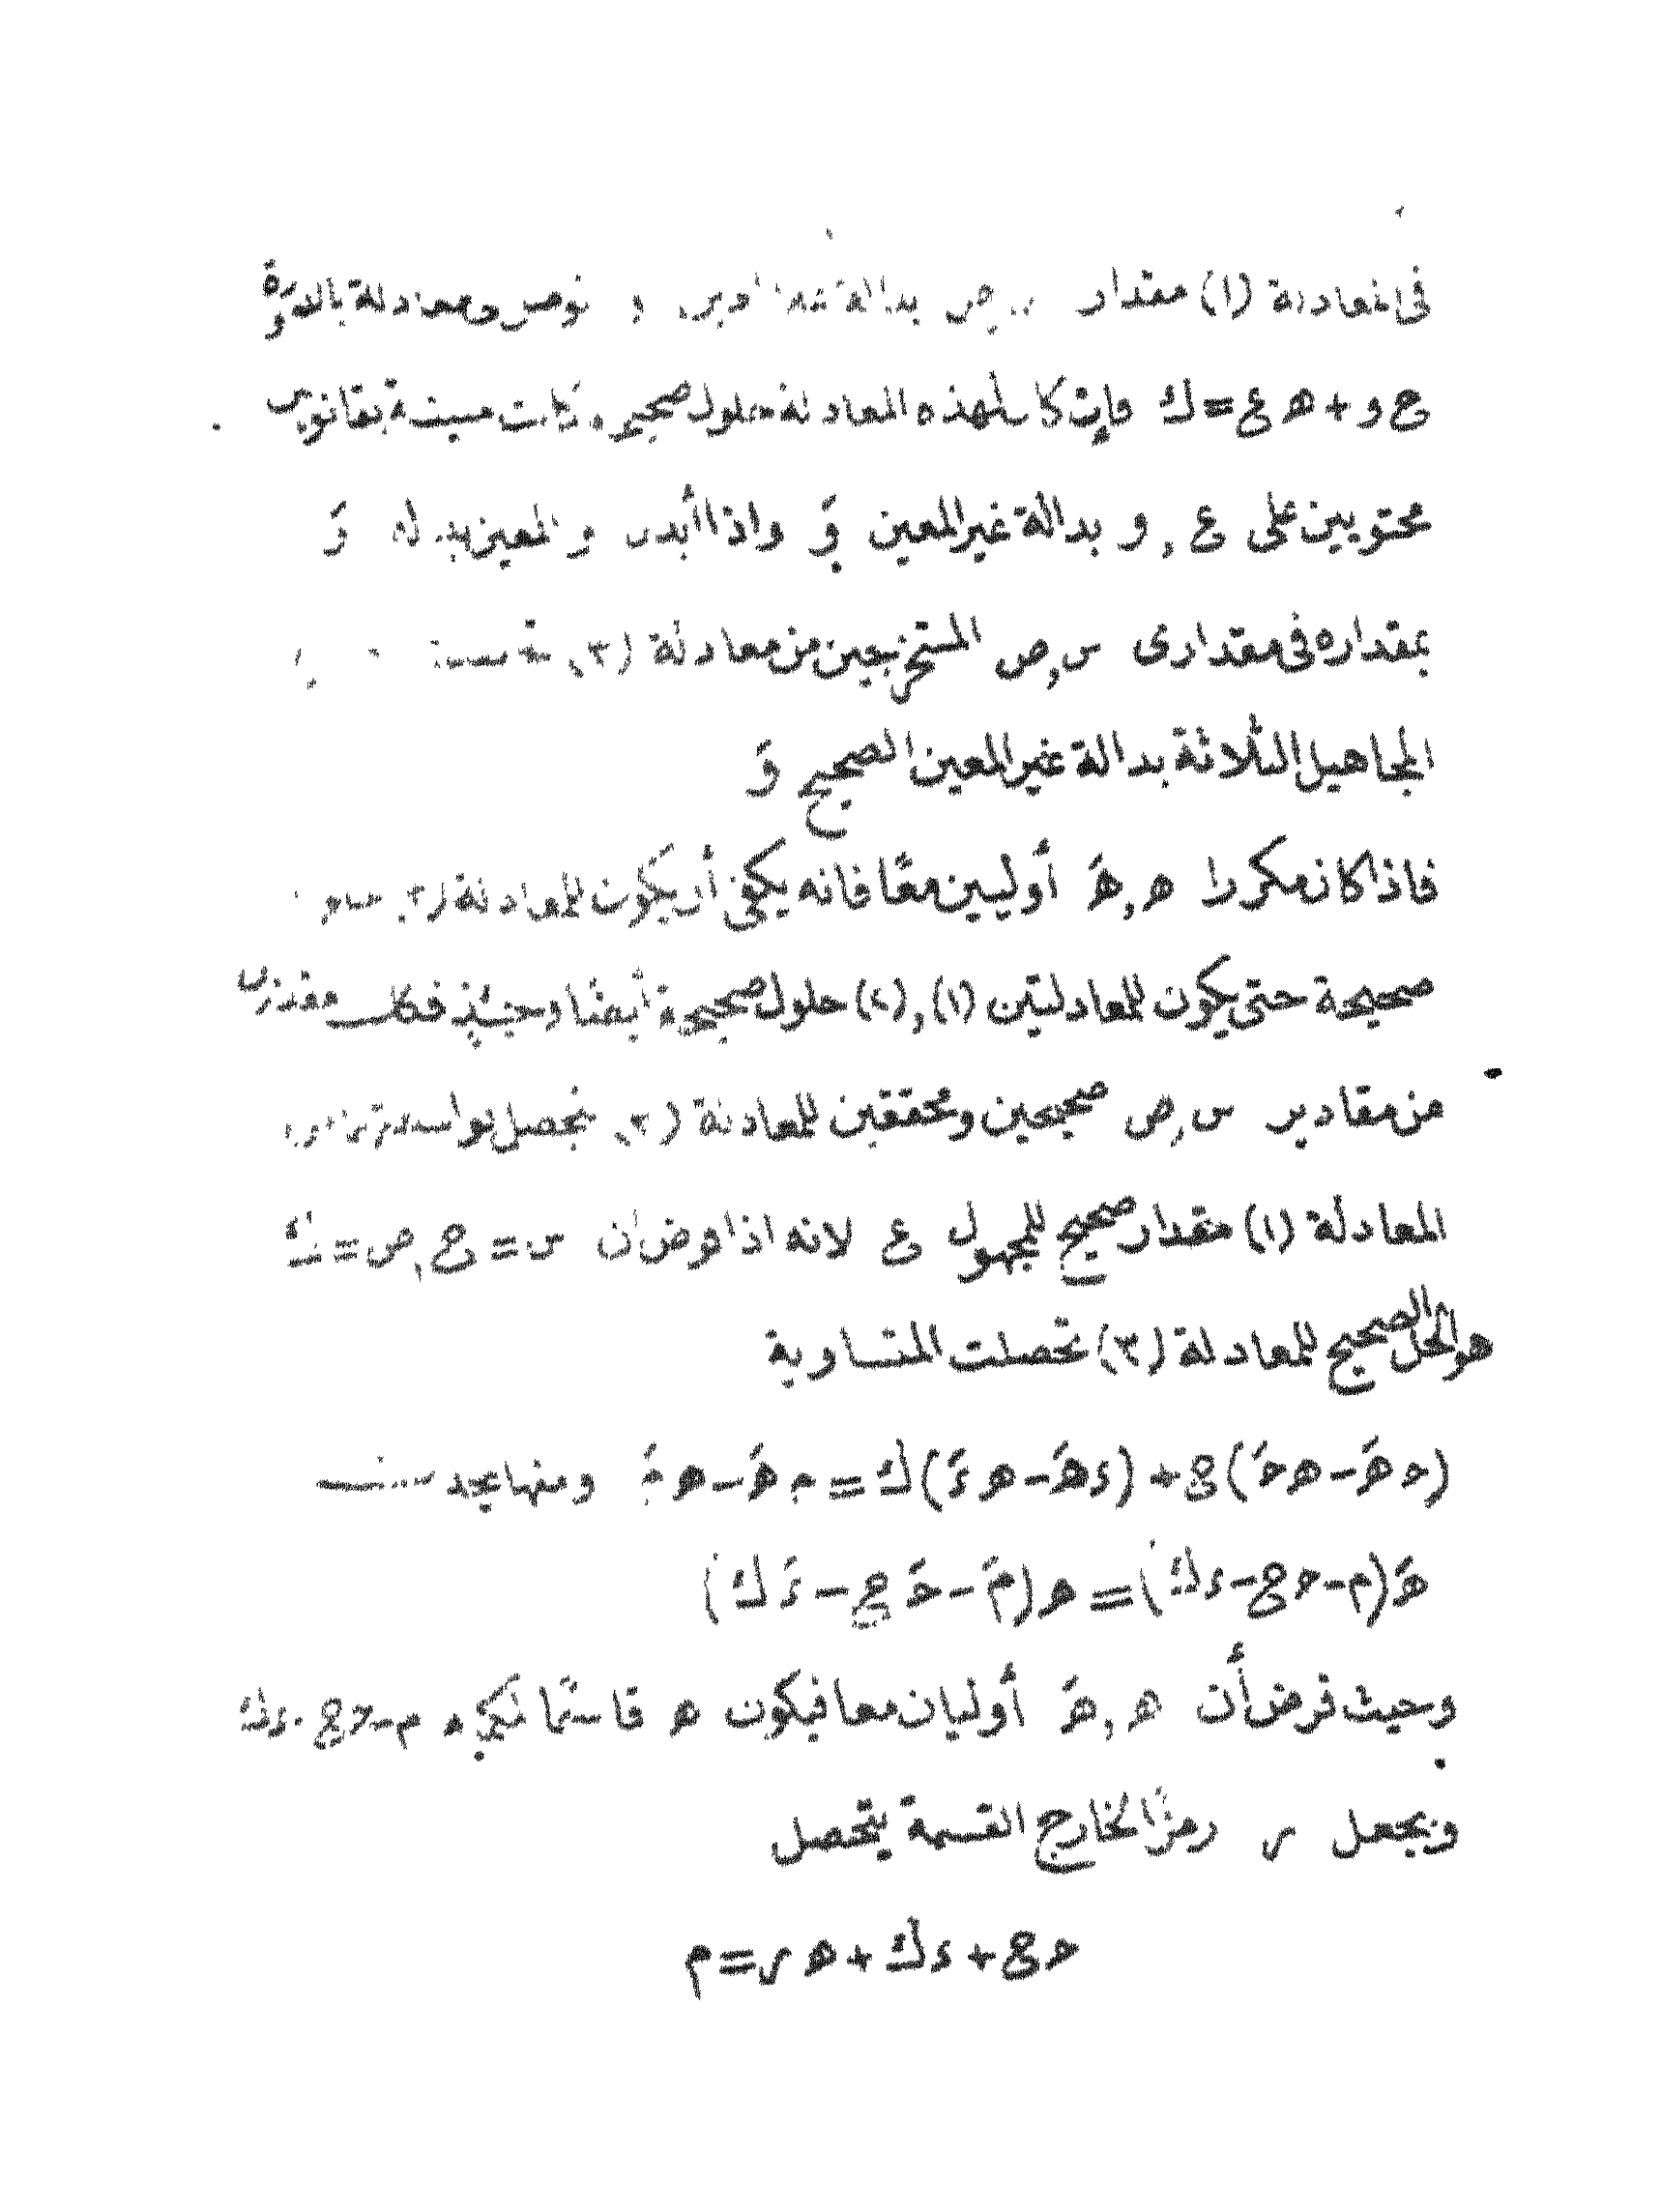 فى المعادلة (١) مقدار س,ص بدالة و نوصل ومعادلة بالصورة
ع و + ه ع = ك فان كان لهذه المعادلة حلول صحيحة وكانت مبينة بقانونين
محتويين على ع , و بدالة غير المعين وَ واذا أبدل و والمعين بدالة وَ
بمقداره فى مقدارى س,ص المستخرجين من معادلة (٣)
المجاهيل الثلاثة بدالة غير المعين الصحيح وَ
فاذا كان مكررا ه , هَ أوليين معًا فانه يكفى أن يكون للمعادلة (٣) حلول
صحيحة حتى يكون للمعادلتين (١) , (٢) حلول صحيحة أيضًا وحينئذ فكل مقدارين
من مقادير س,ص صحيحين ومحققين للمعادلة (٣) نحصل بواسطتهما
المعادلة (١) مقدار صحيح للمجهول ع لانه اذا فرض أن س = ع , ص = ك
هو الحل الصحيح للمعادلة (٣) تحصلت المتساوية
(حهَ-هحَ)ع + (ءهَ-هءَ)ك = مهَ-همَ ومنها يحدث
هَ(م-حع-ءك) = ه(مَ-حَع-ءَك)
وحيث فرض أن ه , هَ أوليان معا فيكون ه قاسمًا لكمية م-حع-ءك
وبجعل ر رمزًا لخارج القسمة يتحصل
حع + ءك + هر = م